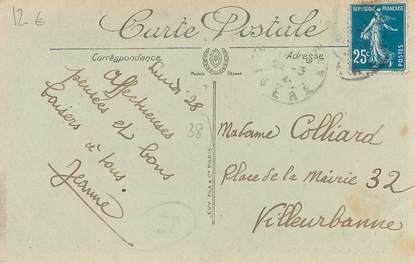 12-6
Carte Postale
Correspondance
Adresse
REPUBLIQUE FRANÇAISE
25c
POSTES
Modèle Déposé
Lundi 28
Affectueuses
pensées et bons
baisers
à tous
Jeanne
38
LEVY FILS & Cie PARIS
Madame Colliard
Place de la Mairie 32
Villeurbanne